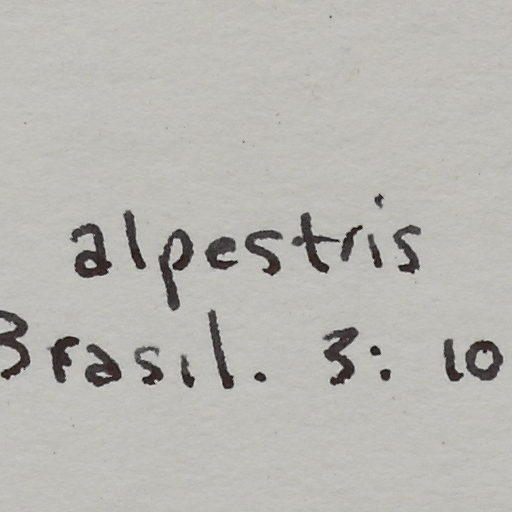 alpestris
Brasil. 3: 10